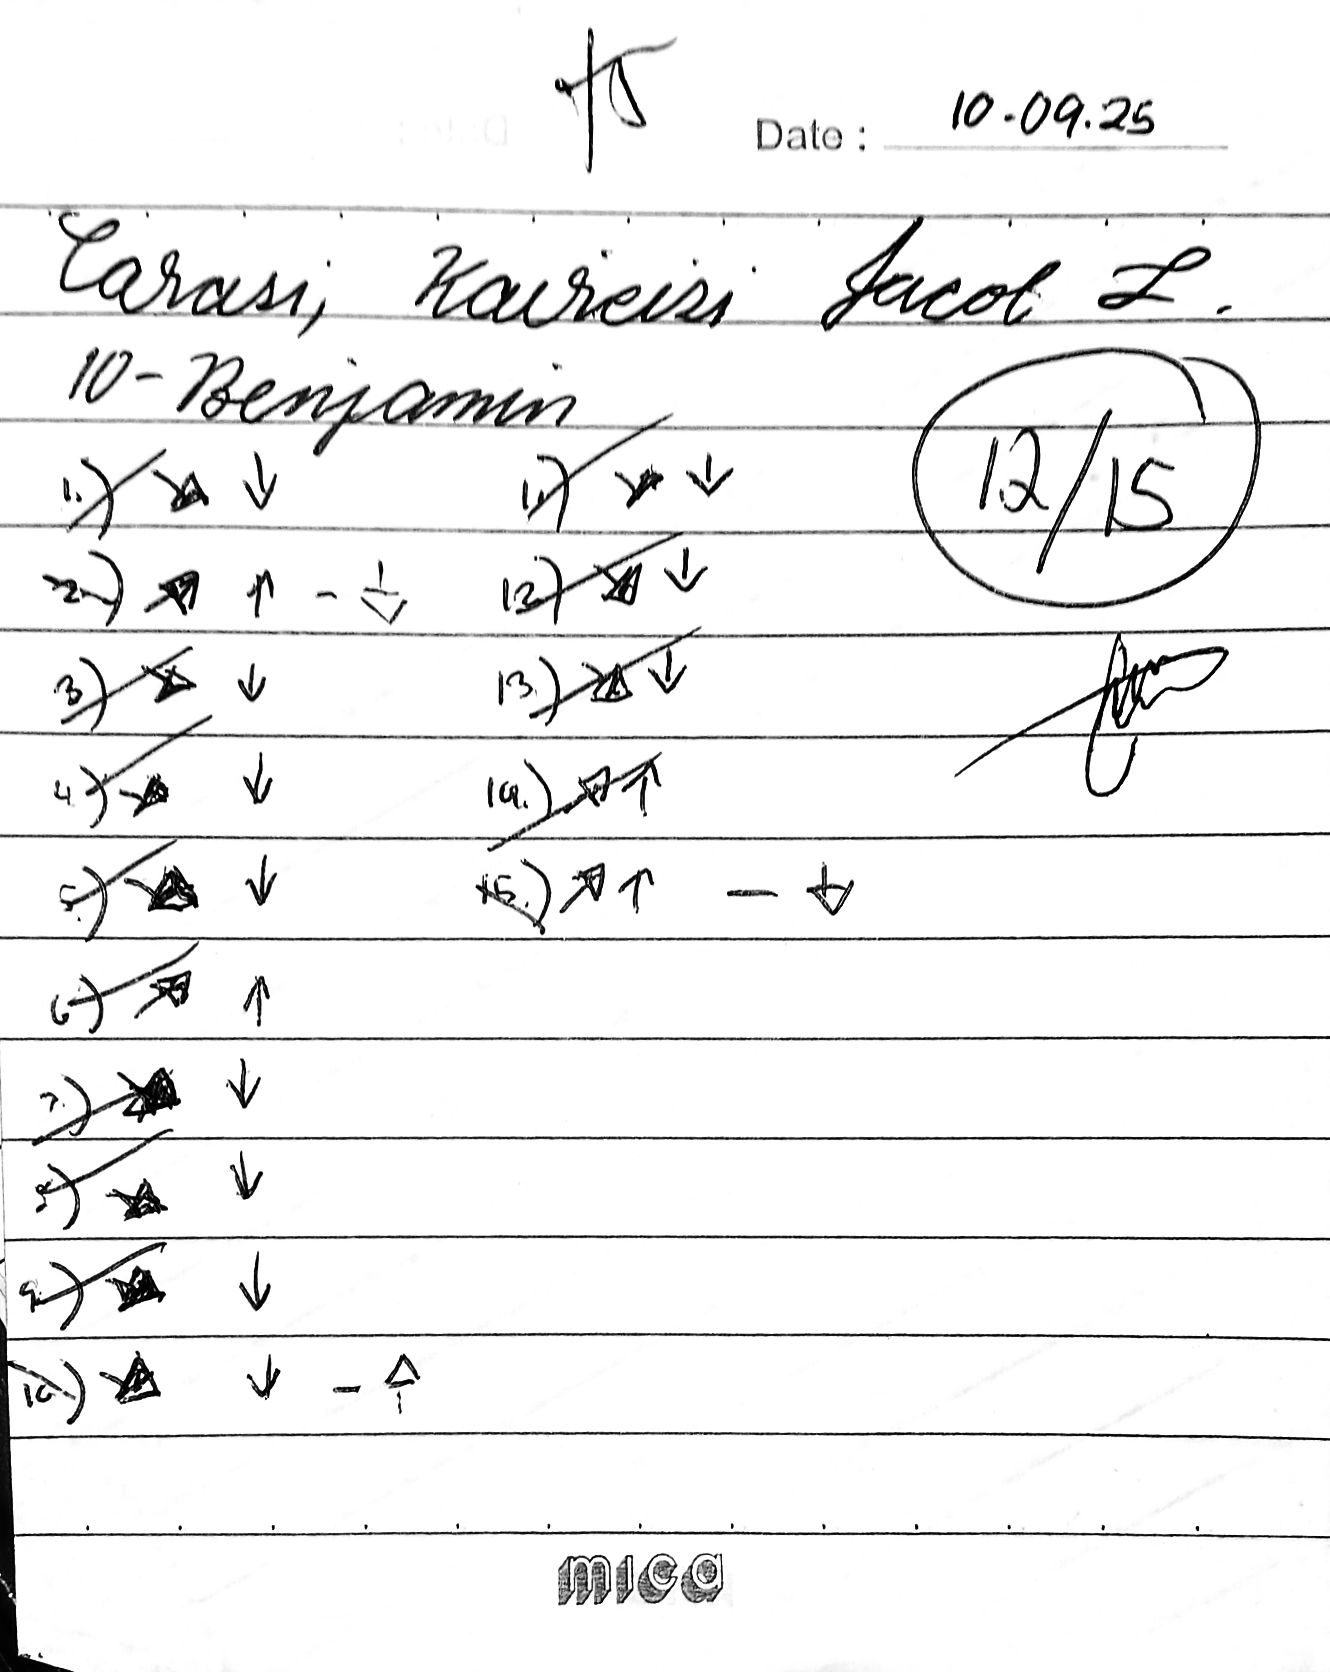 Date : 10-09.25
Carasi, Kaireisi Jacob L.
10-Benjamin
12/15
1.) ↓
2.) ↑ -
3.) ↓
4.) ↓
5.) ↓
6.) ↑
7.) ↓
8.) ↓
9.) ↓
10.) ↓ -
11.) ↓
12.) ↓
13.) ↓
14.) ↑
15.) ↑ -
mica